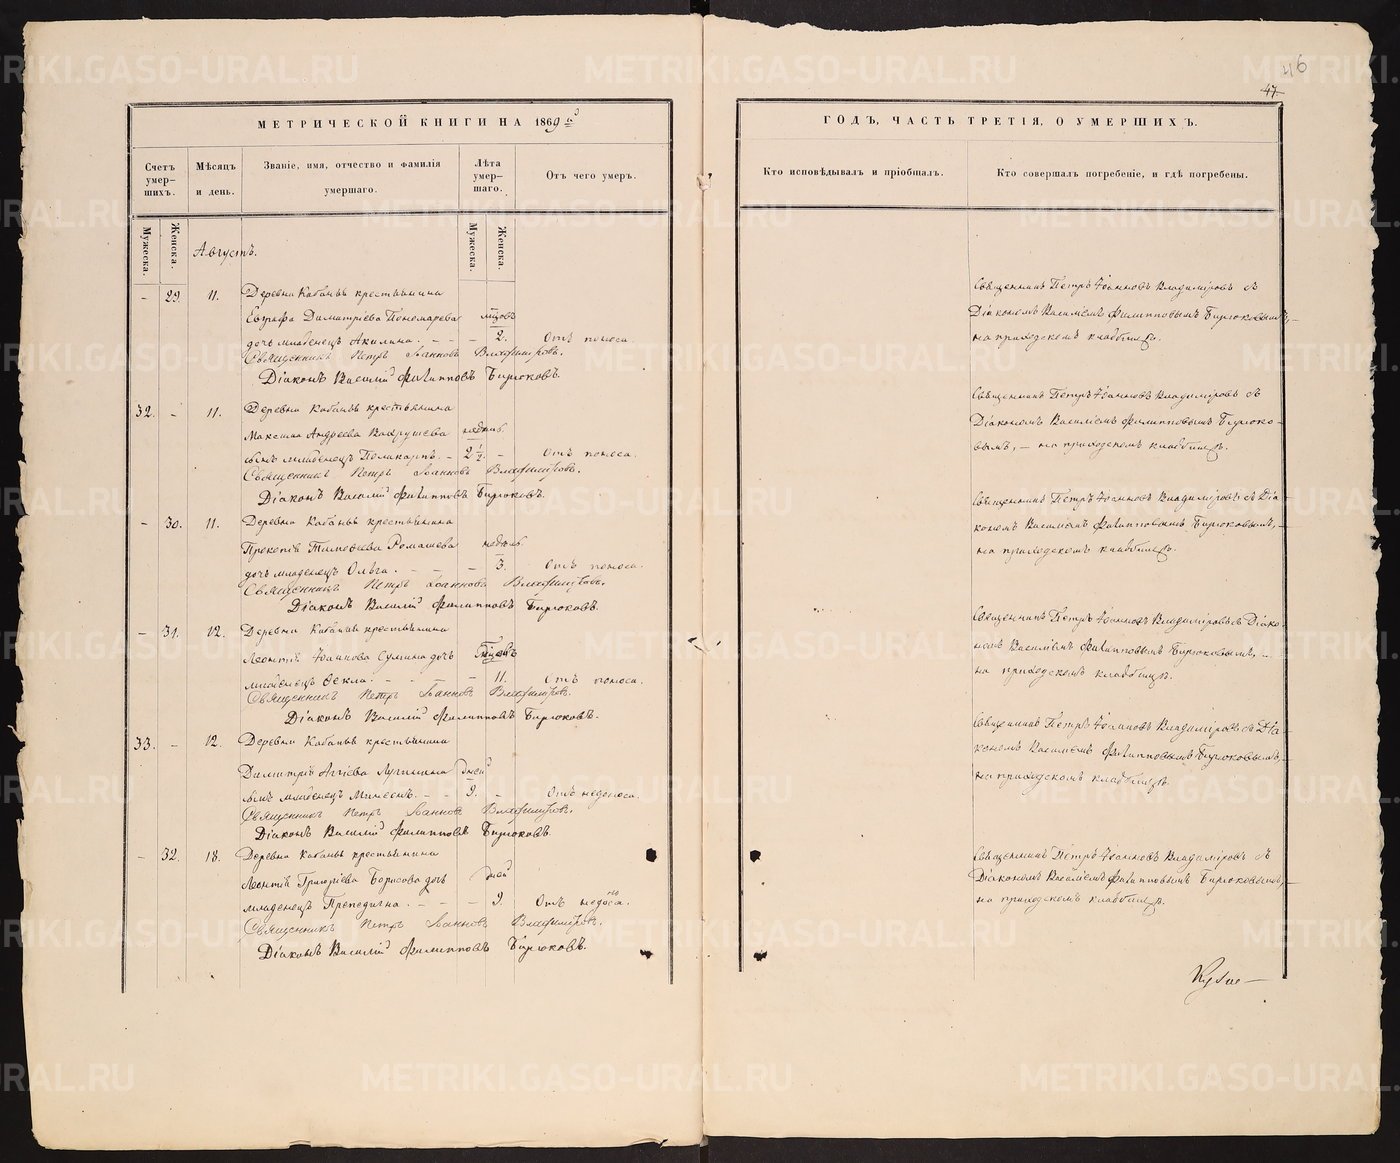 46
47
МЕТРИЧЕСКОЙ КНИГИ НА 1869й
Счетъ умер-шихъ.
Мѣсяцъ и день.
Званіе, имя, отчество и фамилія умершаго.
Лѣта умер-шаго.
Отъ чего умеръ.
Мужеска.
Женска.
Мужеска.
Женска.
Августъ.
- 29. 11. Деревни Кабаньи крестьянина
Евграфа Димитріева Пономарева мѣсяцовъ
дочь младенецъ Акилина. - - - 2. Отъ поноса.
Священникъ Петръ Іоанновъ Владиміровъ.
Діаконъ Василій Филипповъ Бирюковъ.
32. - 11. Деревни Кабаньи крестьянина
Максима Андреева Вахрушева недѣль
сынъ младенецъ Поликарпъ. - 2½ - Отъ поноса.
Священникъ Петръ Іоанновъ Владиміровъ.
Діаконъ Василій Филипповъ Бирюковъ.
- 30. 11. Деревни Кабаньи крестьянина
Прокопія Тимофеева Ромашева недѣль
дочь младенецъ Ольга. - - - 3. Отъ поноса.
Священникъ Петръ Іоанновъ Владиміровъ.
Діаконъ Василій Филипповъ Бирюковъ.
- 31. 12. Деревни Кабаньи крестьянина
Леонтія Іоаннова Сумина дочь
младенецъ Фекла. - - - 11. Отъ поноса.
Священникъ Петръ Іоанновъ Владиміровъ.
Діаконъ Василій Филипповъ Бирюковъ.
33. - 12. Деревни Кабаньи крестьянина
Димитрія Лугинина дней
сынъ младенецъ - - 9. - Отъ недоноса.
Священникъ Петръ Іоанновъ Владиміровъ.
Діаконъ Василій Филипповъ Бирюковъ.
- 32. 18. Деревни Кабаньи крестьянина
Леонтія Григоріева Борисова дочь дней
младенецъ - - - 9. Отъ недоноса.
Священникъ Петръ Іоанновъ Владиміровъ.
Діаконъ Василій Филипповъ Бирюковъ.
ГОДЪ, ЧАСТЬ ТРЕТІЯ, О УМЕРШИХЪ.
Кто исповѣдывалъ и пріобщалъ.
Кто совершалъ погребеніе, и гдѣ погребены.
Священникъ Петръ Іоанновъ Владиміровъ съ
Діакономъ Василіемъ Филипповымъ Бирюковымъ, -
на приходскомъ кладбищѣ.
Священникъ Петръ Іоанновъ Владиміровъ съ
Діакономъ Василіемъ Филипповымъ Бирюко-
вымъ, - на приходскомъ кладбищѣ.
Священникъ Петръ Іоанновъ Владиміровъ съ Діа-
кономъ Василіемъ Филипповымъ Бирюковымъ, -
на приходскомъ кладбищѣ.
Священникъ Петръ Іоанновъ Владиміровъ съ Діако-
номъ Василіемъ Филипповымъ Бирюковымъ, -
на приходскомъ кладбищѣ.
Священникъ Петръ Іоанновъ Владиміровъ съ Діа-
кономъ Василіемъ Филипповымъ Бирюковымъ, -
на приходскомъ кладбищѣ.
Священникъ Петръ Іоанновъ Владиміровъ съ
Діакономъ Василіемъ Филипповымъ Бирюковымъ, -
на приходскомъ кладбищѣ.
METRIKI.GASO-URAL.RU